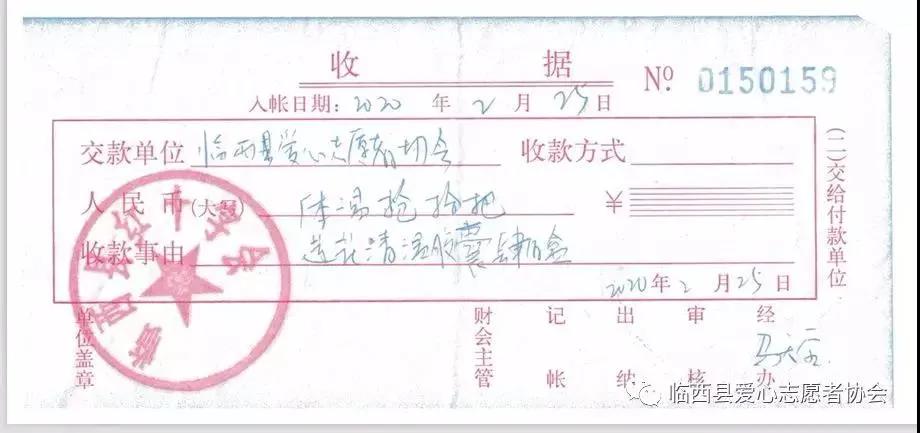 收 据
№ 0150159
入帐日期：2020 年 2 月 25 日
交款单位 临西县爱心志愿者协会 收款方式
人民币(大写) 体温抢拾把 ￥
收款事由 莲花清温胶囊肆百盒
2020年2月25日
(二)交给付款单位
临西县红十字会
单位盖章
财会主管
记帐
出纳
审核
经办
临西县爱心志愿者协会